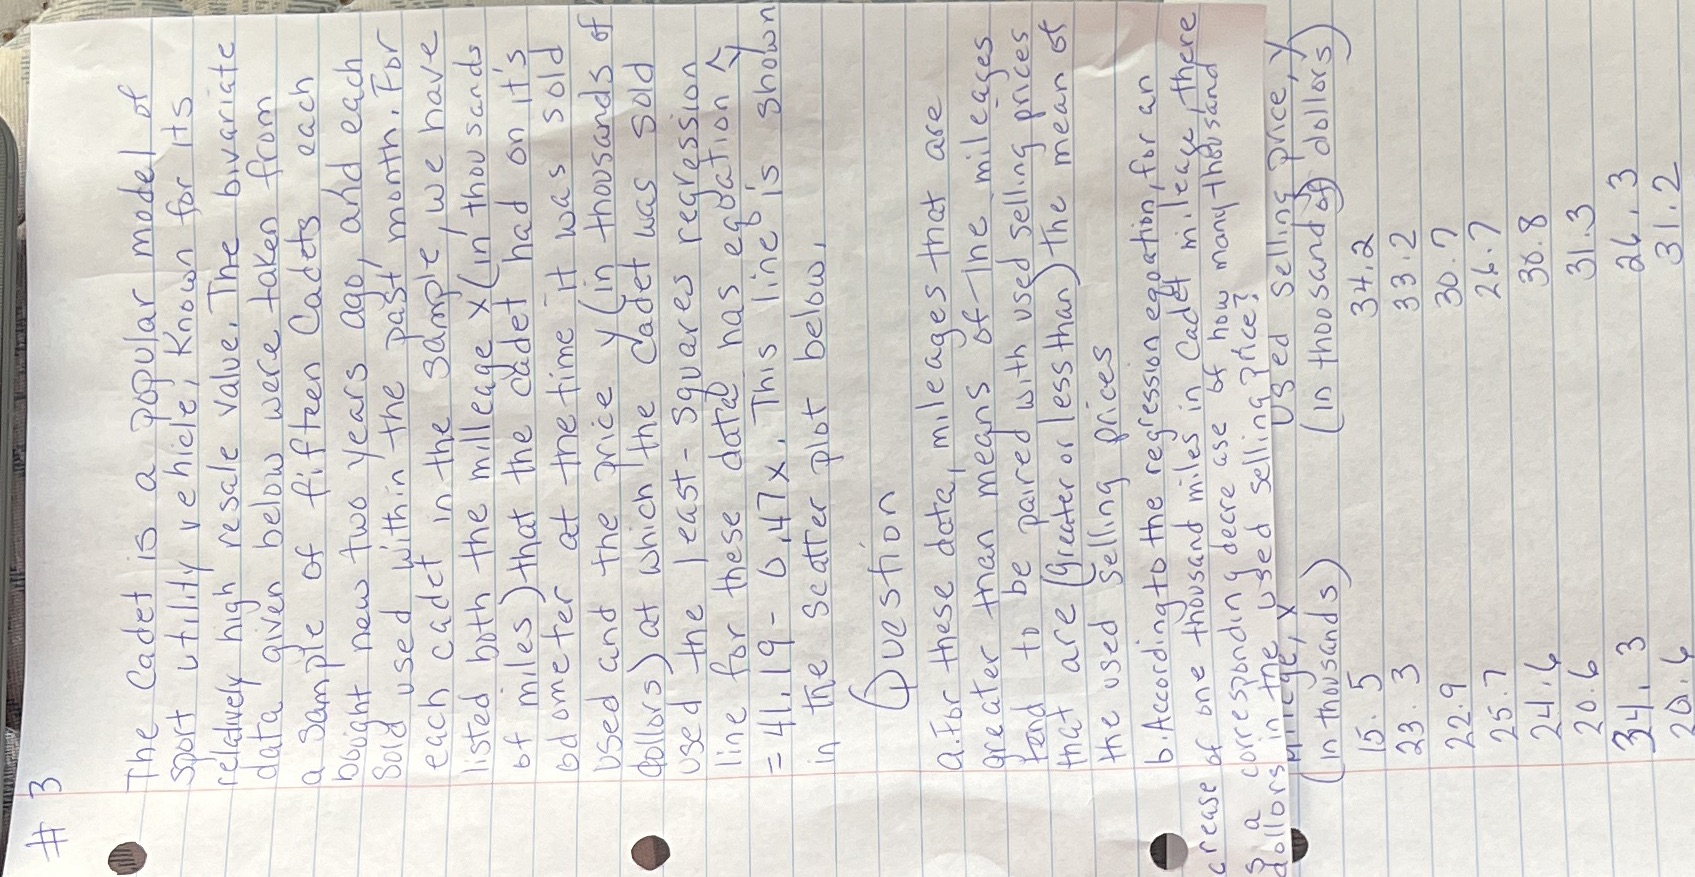 # 3
The Cadet is a popular model of
sport utility vehicle, Known for its
relatively high resale value. The bivariate
data given below were taken from
a sample of fifteen Cadets each
bought new two years ago, and each
Sold used within the past month. For
each cadet in the sample, we have
listed both the milleage x (in thousands
of miles) that the cadet had on it's
odometer at the time it was sold
used and the price y (in thousands of
dollors) at which the cadet was sold
used the least-squares regression
line for these data has equation ŷ
= 41.19 - 0.47x. This line is shown
in the scatter plot below.
Question
a. For these data, mileages that are
greater than means of the mileages
tend to be paired with used selling prices
that are (greater or less than) the mean of
the used selling prices
b. According to the regression equation, for an
crease of one thousand miles in Cadet mileage, there
s a corresponding decrease of how many thousand
dollors in the used selling price?
Mileage, x Used selling price, y
(in thousands) (in thousand of dollors)
15.5 34.2
23.3 33.2
22.9 30.7
25.7 26.7
24.6 30.8
20.6 31.3
34.3 26.3
20.6 31.2